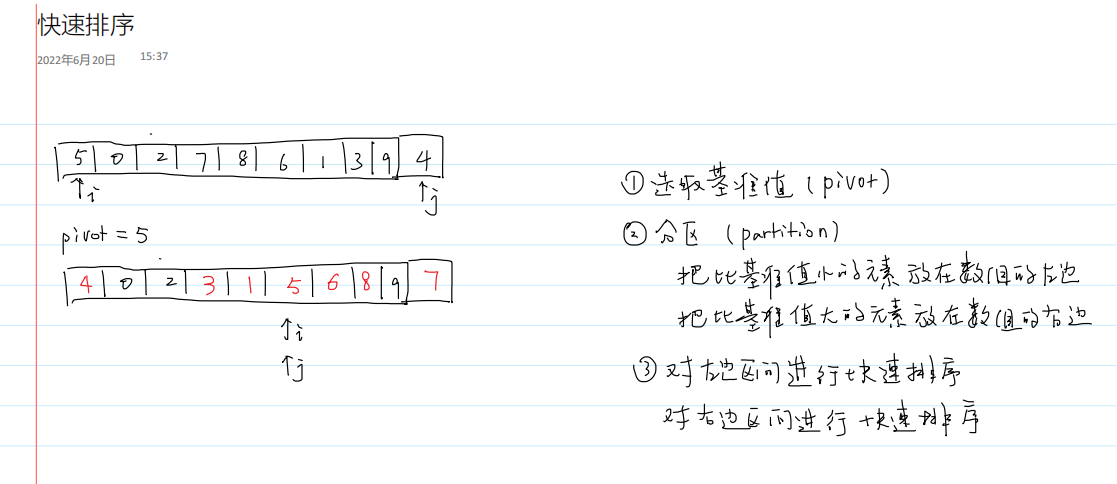 快速排序
2022年6月20日 15:37
5 0 2 7 8 6 1 3 9 4
↑i ↑j
pivot = 5
4 0 2 3 1 5 6 8 9 7
↑i
↑j
① 选取基准值 (pivot)
② 分区 (partition)
把比基准值小的元素放在数组的左边
把比基准值大的元素放在数组的右边
③ 对左边区间进行快速排序
对右边区间进行快速排序